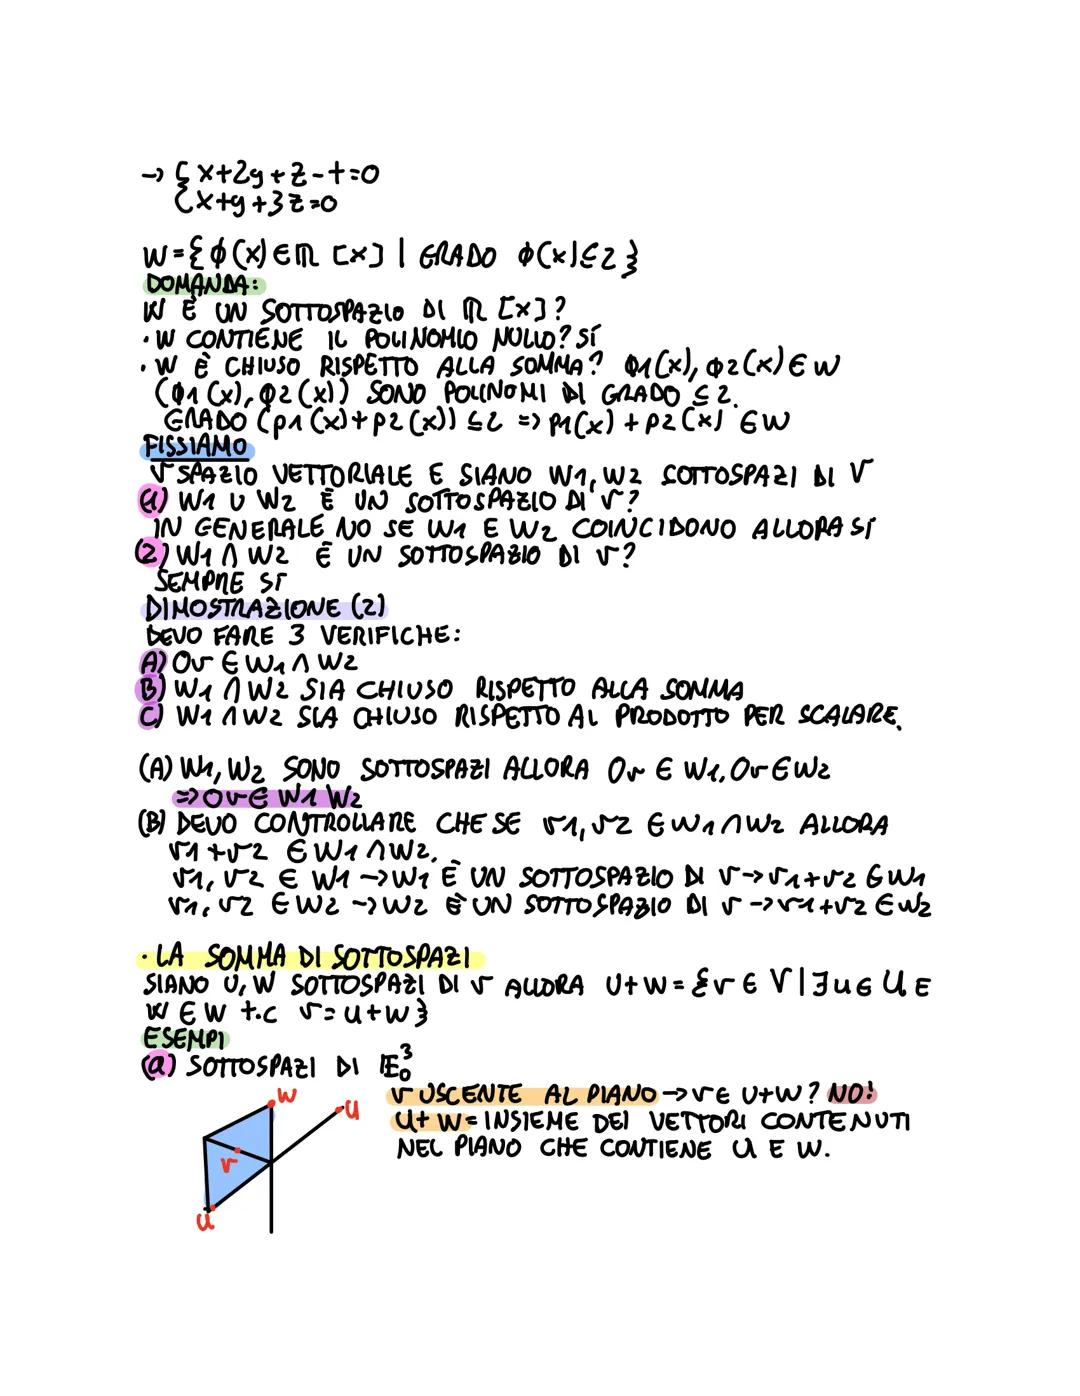 → { x+2y+z-t=0
{ x+y+3z=0
W={ϕ(x)∈ℝ [x] | GRADO ϕ(x)≤2}
DOMANDA:
W È UN SOTTOSPAZIO DI ℝ [x]?
·W CONTIENE IL POLINOMIO NULLO? SÍ
·W È CHIUSO RISPETTO ALLA SOMMA? ϕ1(x), ϕ2(x)∈W
(ϕ1(x), ϕ2(x)) SONO POLINOMI DI GRADO ≤2.
GRADO (p1(x)+p2(x)) ≤2 => p1(x)+p2(x) ∈W
FISSIAMO
V SPAZIO VETTORIALE E SIANO W1, W2 SOTTOSPAZI DI V
(1) W1 ∪ W2 È UN SOTTOSPAZIO DI V?
IN GENERALE NO SE W1 E W2 COINCIDONO ALLORA SÍ
(2) W1 ∩ W2 È UN SOTTOSPAZIO DI V?
SEMPRE SÍ
DIMOSTRAZIONE (2)
DEVO FARE 3 VERIFICHE:
A) 0v ∈ W1 ∩ W2
B) W1 ∩ W2 SIA CHIUSO RISPETTO ALLA SOMMA
C) W1 ∩ W2 SIA CHIUSO RISPETTO AL PRODOTTO PER SCALARE.
(A) W1, W2 SONO SOTTOSPAZI ALLORA 0v ∈ W1, 0v ∈ W2
=> 0v∈ W1 W2
(B) DEVO CONTROLLARE CHE SE v1, v2 ∈ W1 ∩ W2 ALLORA
v1+v2 ∈ W1 ∩ W2.
v1, v2 ∈ W1 → W1 È UN SOTTOSPAZIO DI V → v1+v2 ∈ W1
v1, v2 ∈ W2 → W2 È UN SOTTOSPAZIO DI V → v1+v2 ∈ W2
· LA SOMMA DI SOTTOSPAZI
SIANO U, W SOTTOSPAZI DI V ALLORA U+W={v∈ V|∃u∈ U E
W ∈ W t.c v=u+w}
ESEMPI
(a) SOTTOSPAZI DI E₀³
W
u
v
u
V USCENTE AL PIANO → v∈ U+W? NO!
U+W= INSIEME DEI VETTORI CONTENUTI
NEL PIANO CHE CONTIENE U E W.